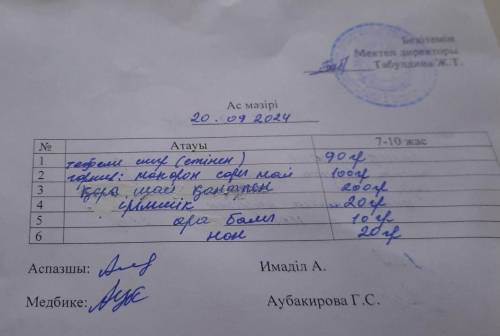 Бекітемін
Мектеп директоры
Табулдина Ж.Т.
Ас мәзірі
20.09.2024
№ Атауы 7-10 жас
1 тефтели (етінен) 90гр
2 гарнир: макорон сары май 100гр
3 Қара шай қантпен 200гр
4 ірімшік 20гр
5 ара балы 10гр
6 нон 20гр
Аспазшы: Имаділ А.
Медбике: Аубакирова Г.С.